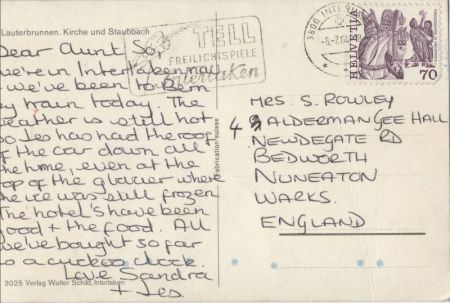 Lauterbrunnen. Kirche und Staubbach
Dear Aunt So,
we're in Interlaken now
we've been to Bern
by train today. The
weather is still hot
so Les has had the roof
of the car down all
the time, even at the
top of the glacier where
the ice was still frozen
The hotel's have been
good + the food. All
we've bought so far
is a cuckoo clock.
Love Sandra
+ Les.
3025 Verlag Walter Schild, Interlaken
Fabrication suisse
TELL
FREILICHTSPIELE
Interlaken
3800 INTER
HELVETIA
70
MRS. S. ROWLEY
4 ALDERMAN GEE HALL
NEWDEGATE RD
BEDWORTH
NUNEATON
WARKS.
ENGLAND